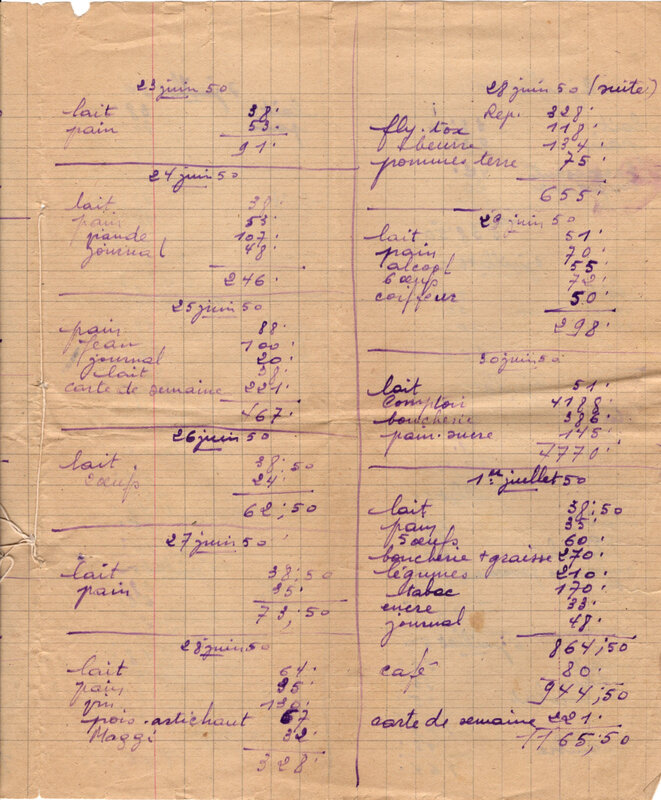 23 juin 50
lait 38.
pain 53.
91.
24 juin 50
lait 38.
pain 53
viande 107.
journal 48.
246.
25 juin 50
pain 88.
Jean 100.
journal 20.
lait 38.
carte de semaine 221.
467.
26 juin 50
lait 38,50
2 oeufs 24.
62,50
27 juin 50
lait 38,50
pain 35.
73,50
28 juin 50
lait 64.
pain 35.
vin 130.
pois-artichaut 67
Maggi 32.
328.
28 juin 50 (suite)
Rep. 328.
fly-tox 118.
beurre 134.
pommes terre 75.
655.
29 juin 50
lait 51.
pain 70.
alcool 55
6 oeufs 72.
coiffeur 50.
298.
30 juin 50
lait 51.
Comptoir 4188.
boucherie 386.
pain-sucre 145.
4770.
1er juillet 50
lait 38,50
pain 35.
5 oeufs 60.
boucherie + graisse 270.
légumes 210.
tabac 170.
encre 33.
journal 48.
864,50
café 80.
944,50
carte de semaine 221.
1165,50